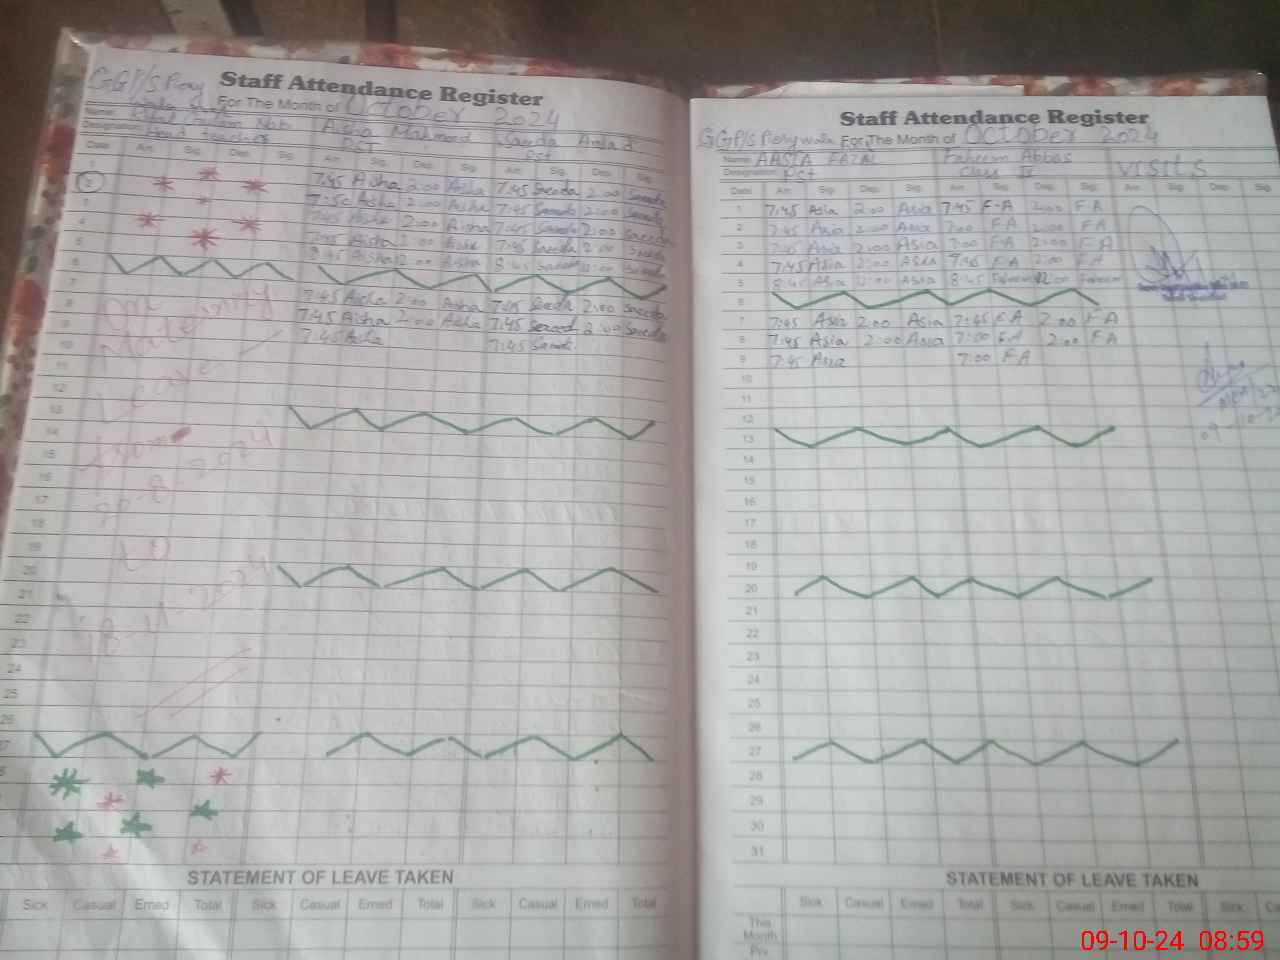 GGP/s Piery Staff Attendance Register
wala For The Month of October 2024
Name: Aisha Mahmood Saeeda
Designation: Head teacher PST Pst
Date Arr. Sig. Dep. Sig. Arr. Sig. Dep. Sig. Arr. Sig. Dep. Sig.
1 7:45 Aisha 2:00 Aisha 7:45 Saeeda 2:00 Saeeda
2 Aisha 2:00 Aisha 7:45 Saeeda 2:00 Saeeda
7:45 Aisha 2:00 Aisha 7:45 Saeeda 2:00 Saeeda
4 7:45 Aisha 2:00 Aisha 7:45 Saeeda 2:00 Saeeda
5 8:45 Aisha 12:00 Aisha 8:45 Saeeda 12:00 Saeeda
6
7 7:45 Aisha 2:00 Aisha 7:45 Saeeda 2:00 Saeeda
8 7:45 Aisha 2:00 Aisha 7:45 Saeeda 2:00 Saeeda
9 7:45 Aisha 7:45 Saeeda
10
11
12
13
14
15
16
17
18
19
20
21
22
23
24
25
26
On Maternity
Leave
From
30-8-2024
to
28-11-2024
STATEMENT OF LEAVE TAKEN
Sick Casual Erned Total Sick Casual Erned Total Sick Casual Erned Total
Staff Attendance Register
GGP/s Pierywala For The Month of October 2024
Name: AASIA FAZAL Faheem Abbas VISITS
Designation: Pst Class IV
Date Arr. Sig. Dep. Sig. Arr. Sig. Dep. Sig. Arr. Sig. Dep. Sig.
1 7:45 Asia 2:00 Asia 7:45 F.A 2:00 F A
2 7:45 Asia 2:00 Asia 7:00 F A 2:00 F A
3 7:45 Asia 2:00 Asia 7:00 F A 2:00 F A
4 7:45 Asia 2:00 Asia 7:45 F A 2:00 F A
5 8:45 Asia 12:00 Asia 8:45 Faheem 12:00 Faheem
6
7 7:45 Asia 2:00 Asia 7:45 F A 2:00 F A
8 7:45 Asia 2:00 Asia 7:00 F A 2:00 F A
9 7:45 Asia 7:00 F A
10
11
12
13
14
15
16
17
18
19
20
21
22
23
24
25
26
27
28
29
30
31
STATEMENT OF LEAVE TAKEN
Sick Casual Erned Total Sick Casual Erned Total Sick
This
Month
Prv.
09-10-24 08:59